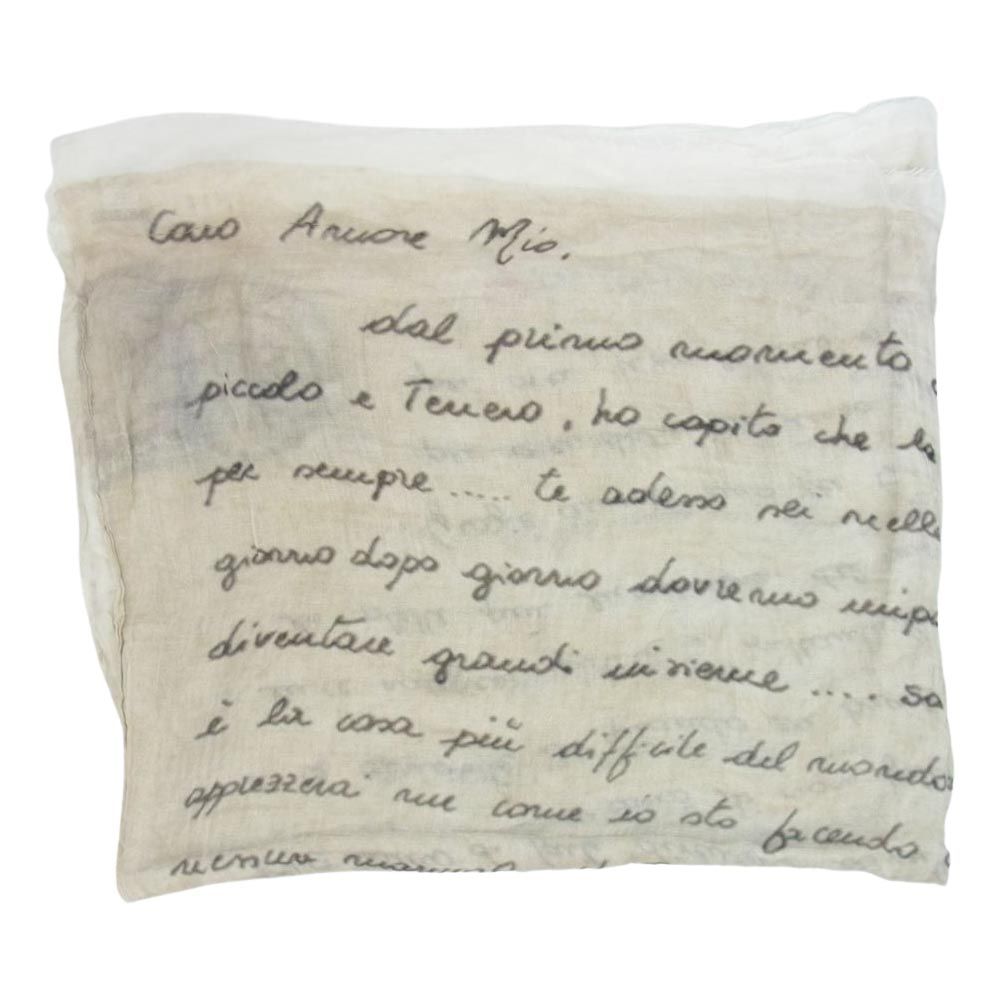 Caro Amore Mio,
dal primo momento
piccolo e Tenero, ho capito che la
per sempre ..... te adesso sei nella
giorno dopo giorno dovremo impa
diventare grandi insieme .... sa
è la cosa più difficile del mondo
apprezzerai me come io sto facendo
nessun manual